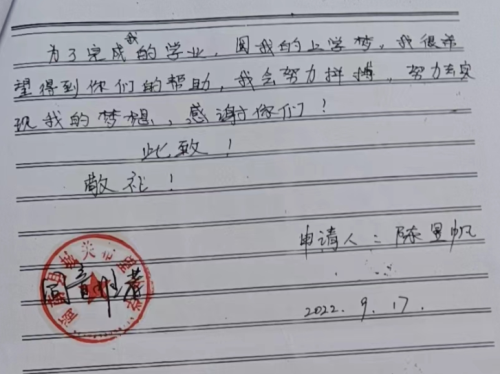 为了完成我的学业,圆我的上学梦。我很希
望得到你们的帮助,我会努力拼搏,努力去实
现我的梦想,感谢你们!
此致!
敬礼!
申请人:陈
2022.9.17.